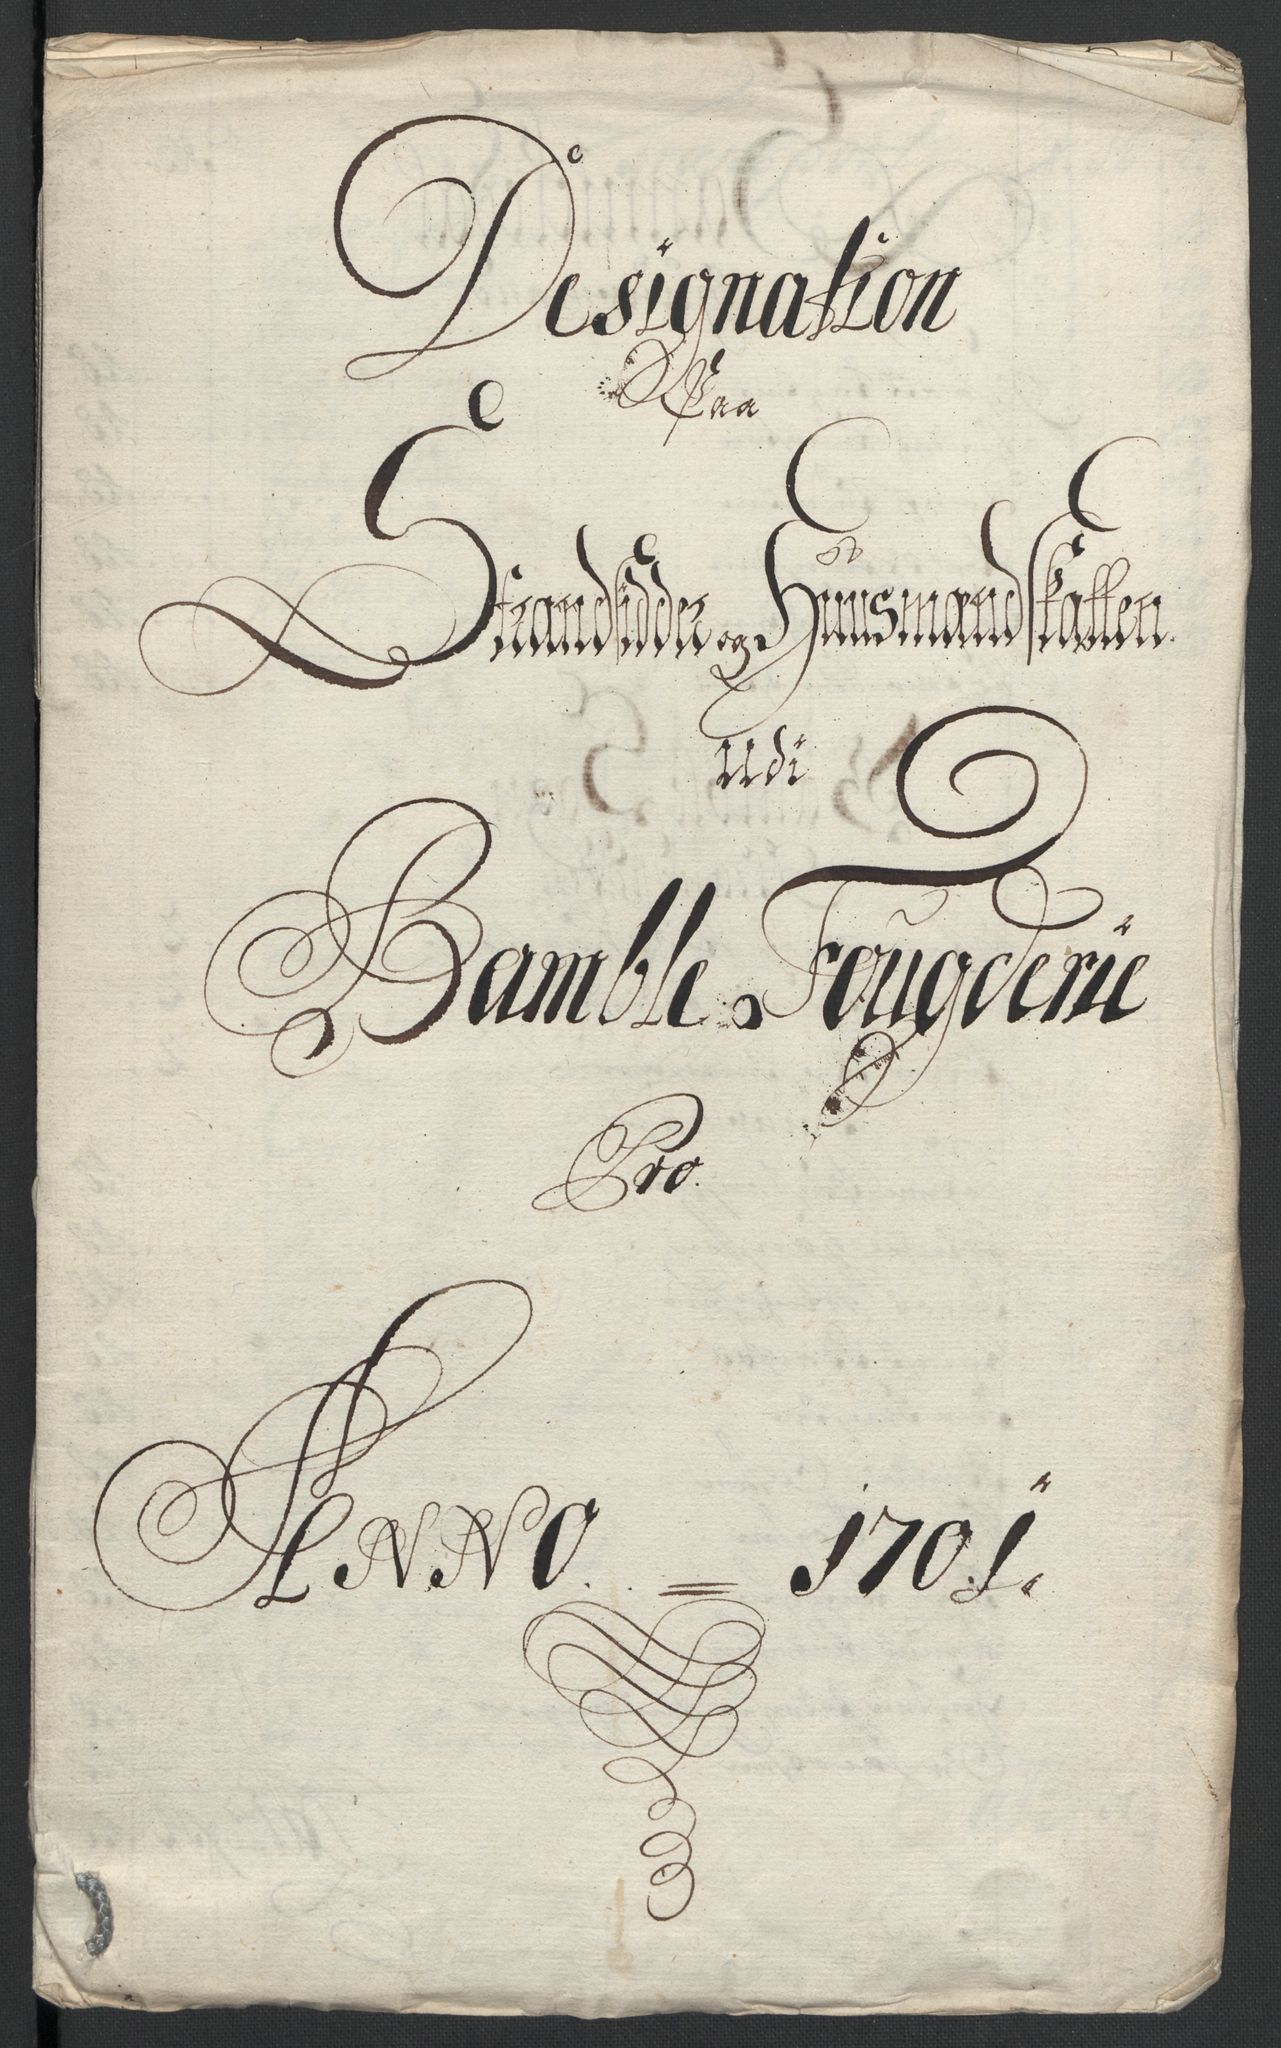 Designation
Paa
Strandsidder og Huusmand skatten.
Udi
Bamble Fougderie
Pro.
ANNO. = 1701.